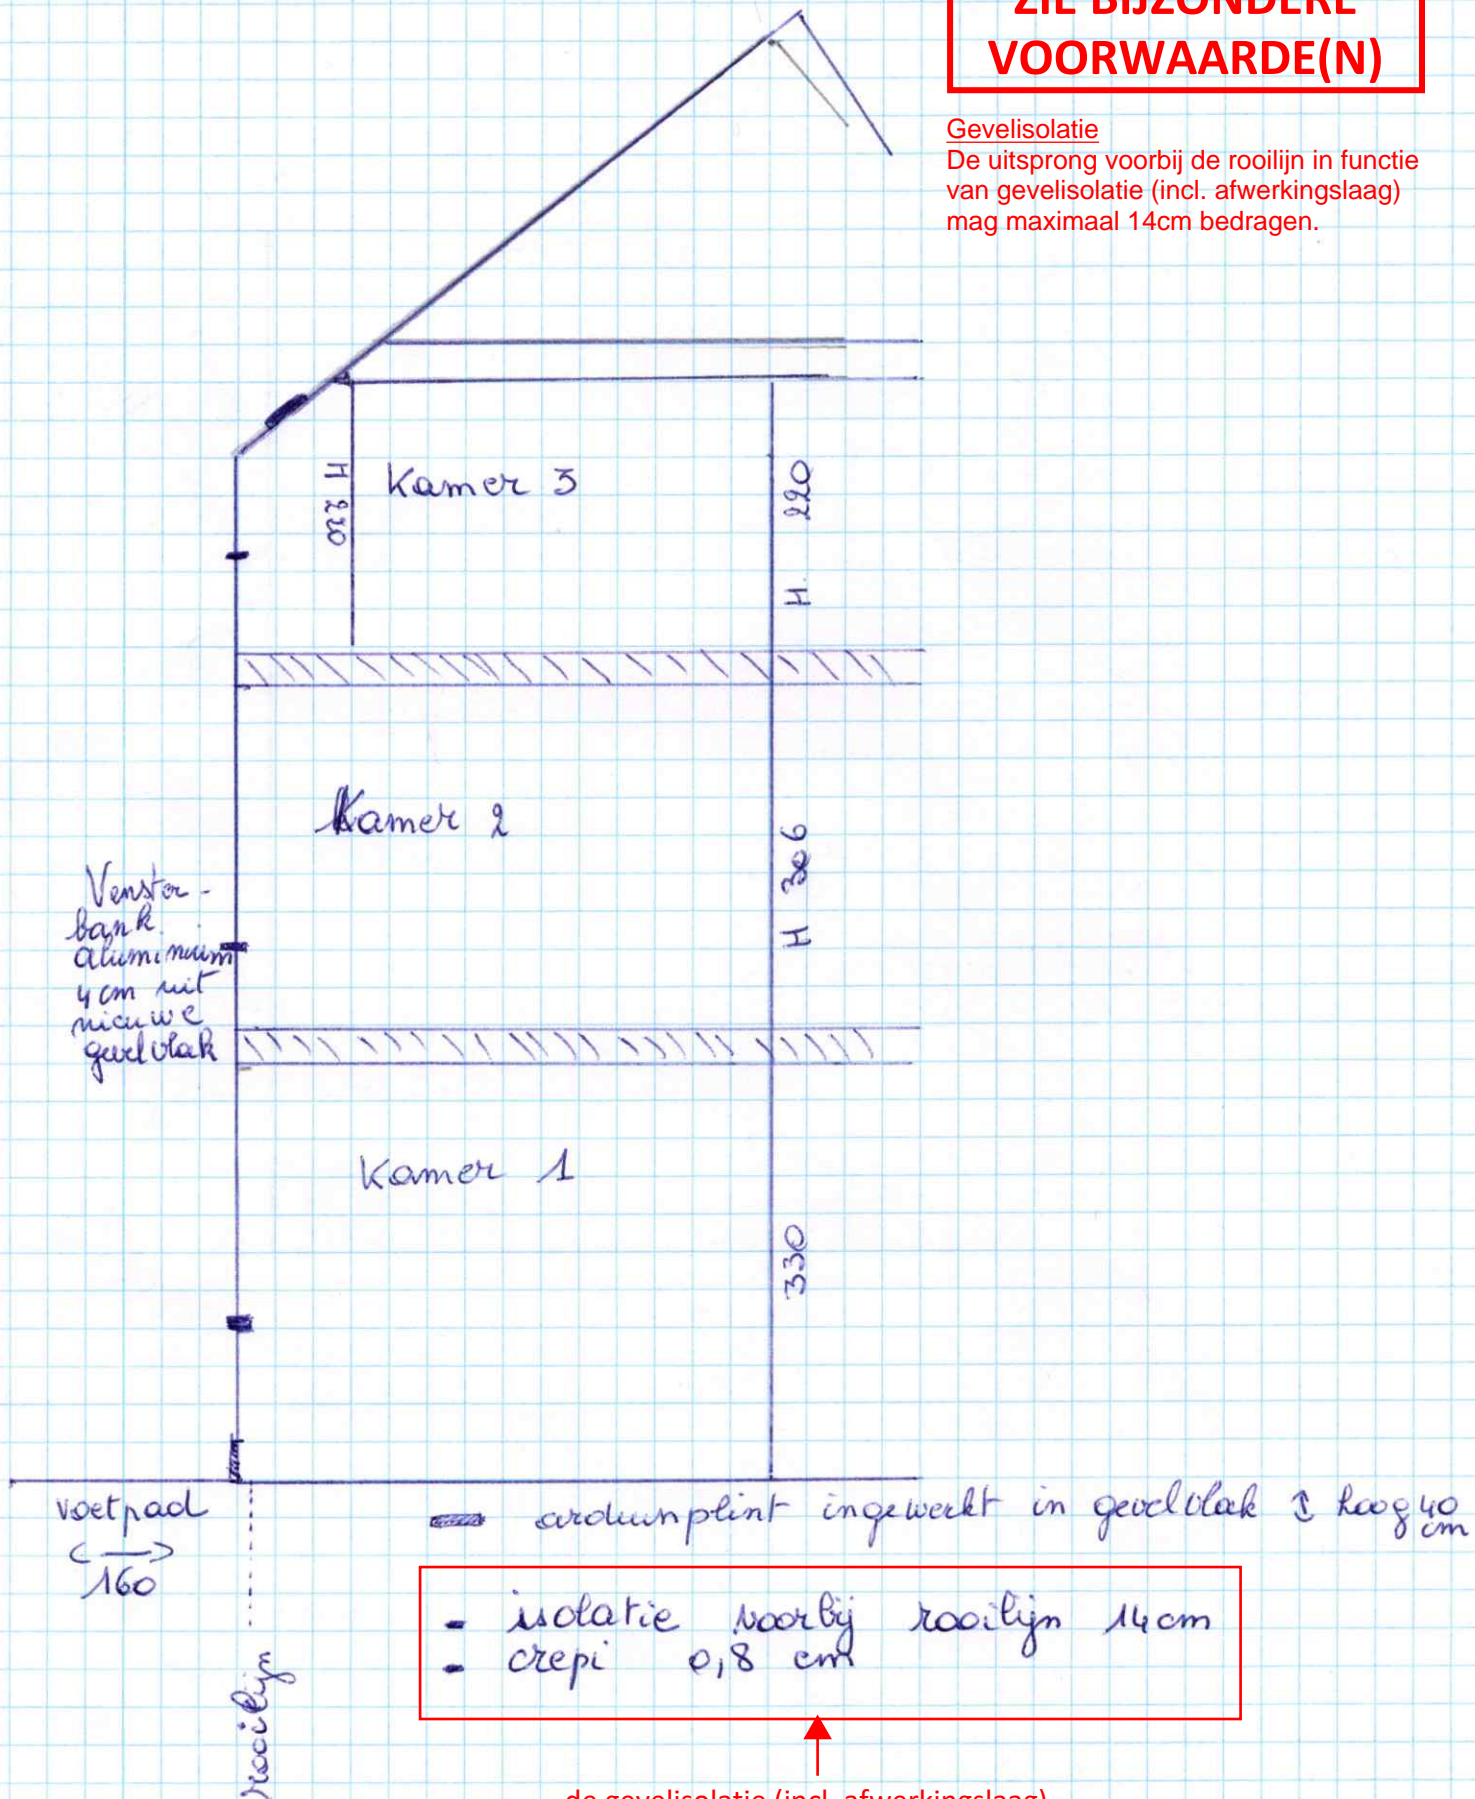 ZIE BIJZONDERE
VOORWAARDE(N)
Gevelisolatie
De uitsprong voorbij de rooilijn in functie
van gevelisolatie (incl. afwerkingslaag)
mag maximaal 14cm bedragen.
Kamer 3
H 220
H. 220
Kamer 2
H 306
Venster-
bank
aluminium
4 cm uit
nieuwe
gevelvlak
Kamer 1
330
voetpad
160
rooilijn
arduinplint ingewerkt in gevelvlak ↕ hoog 40
cm
- isolatie voorbij rooilijn 14cm
- crepi 0,8 cm
de gevelisolatie (incl. afwerkingslaag)